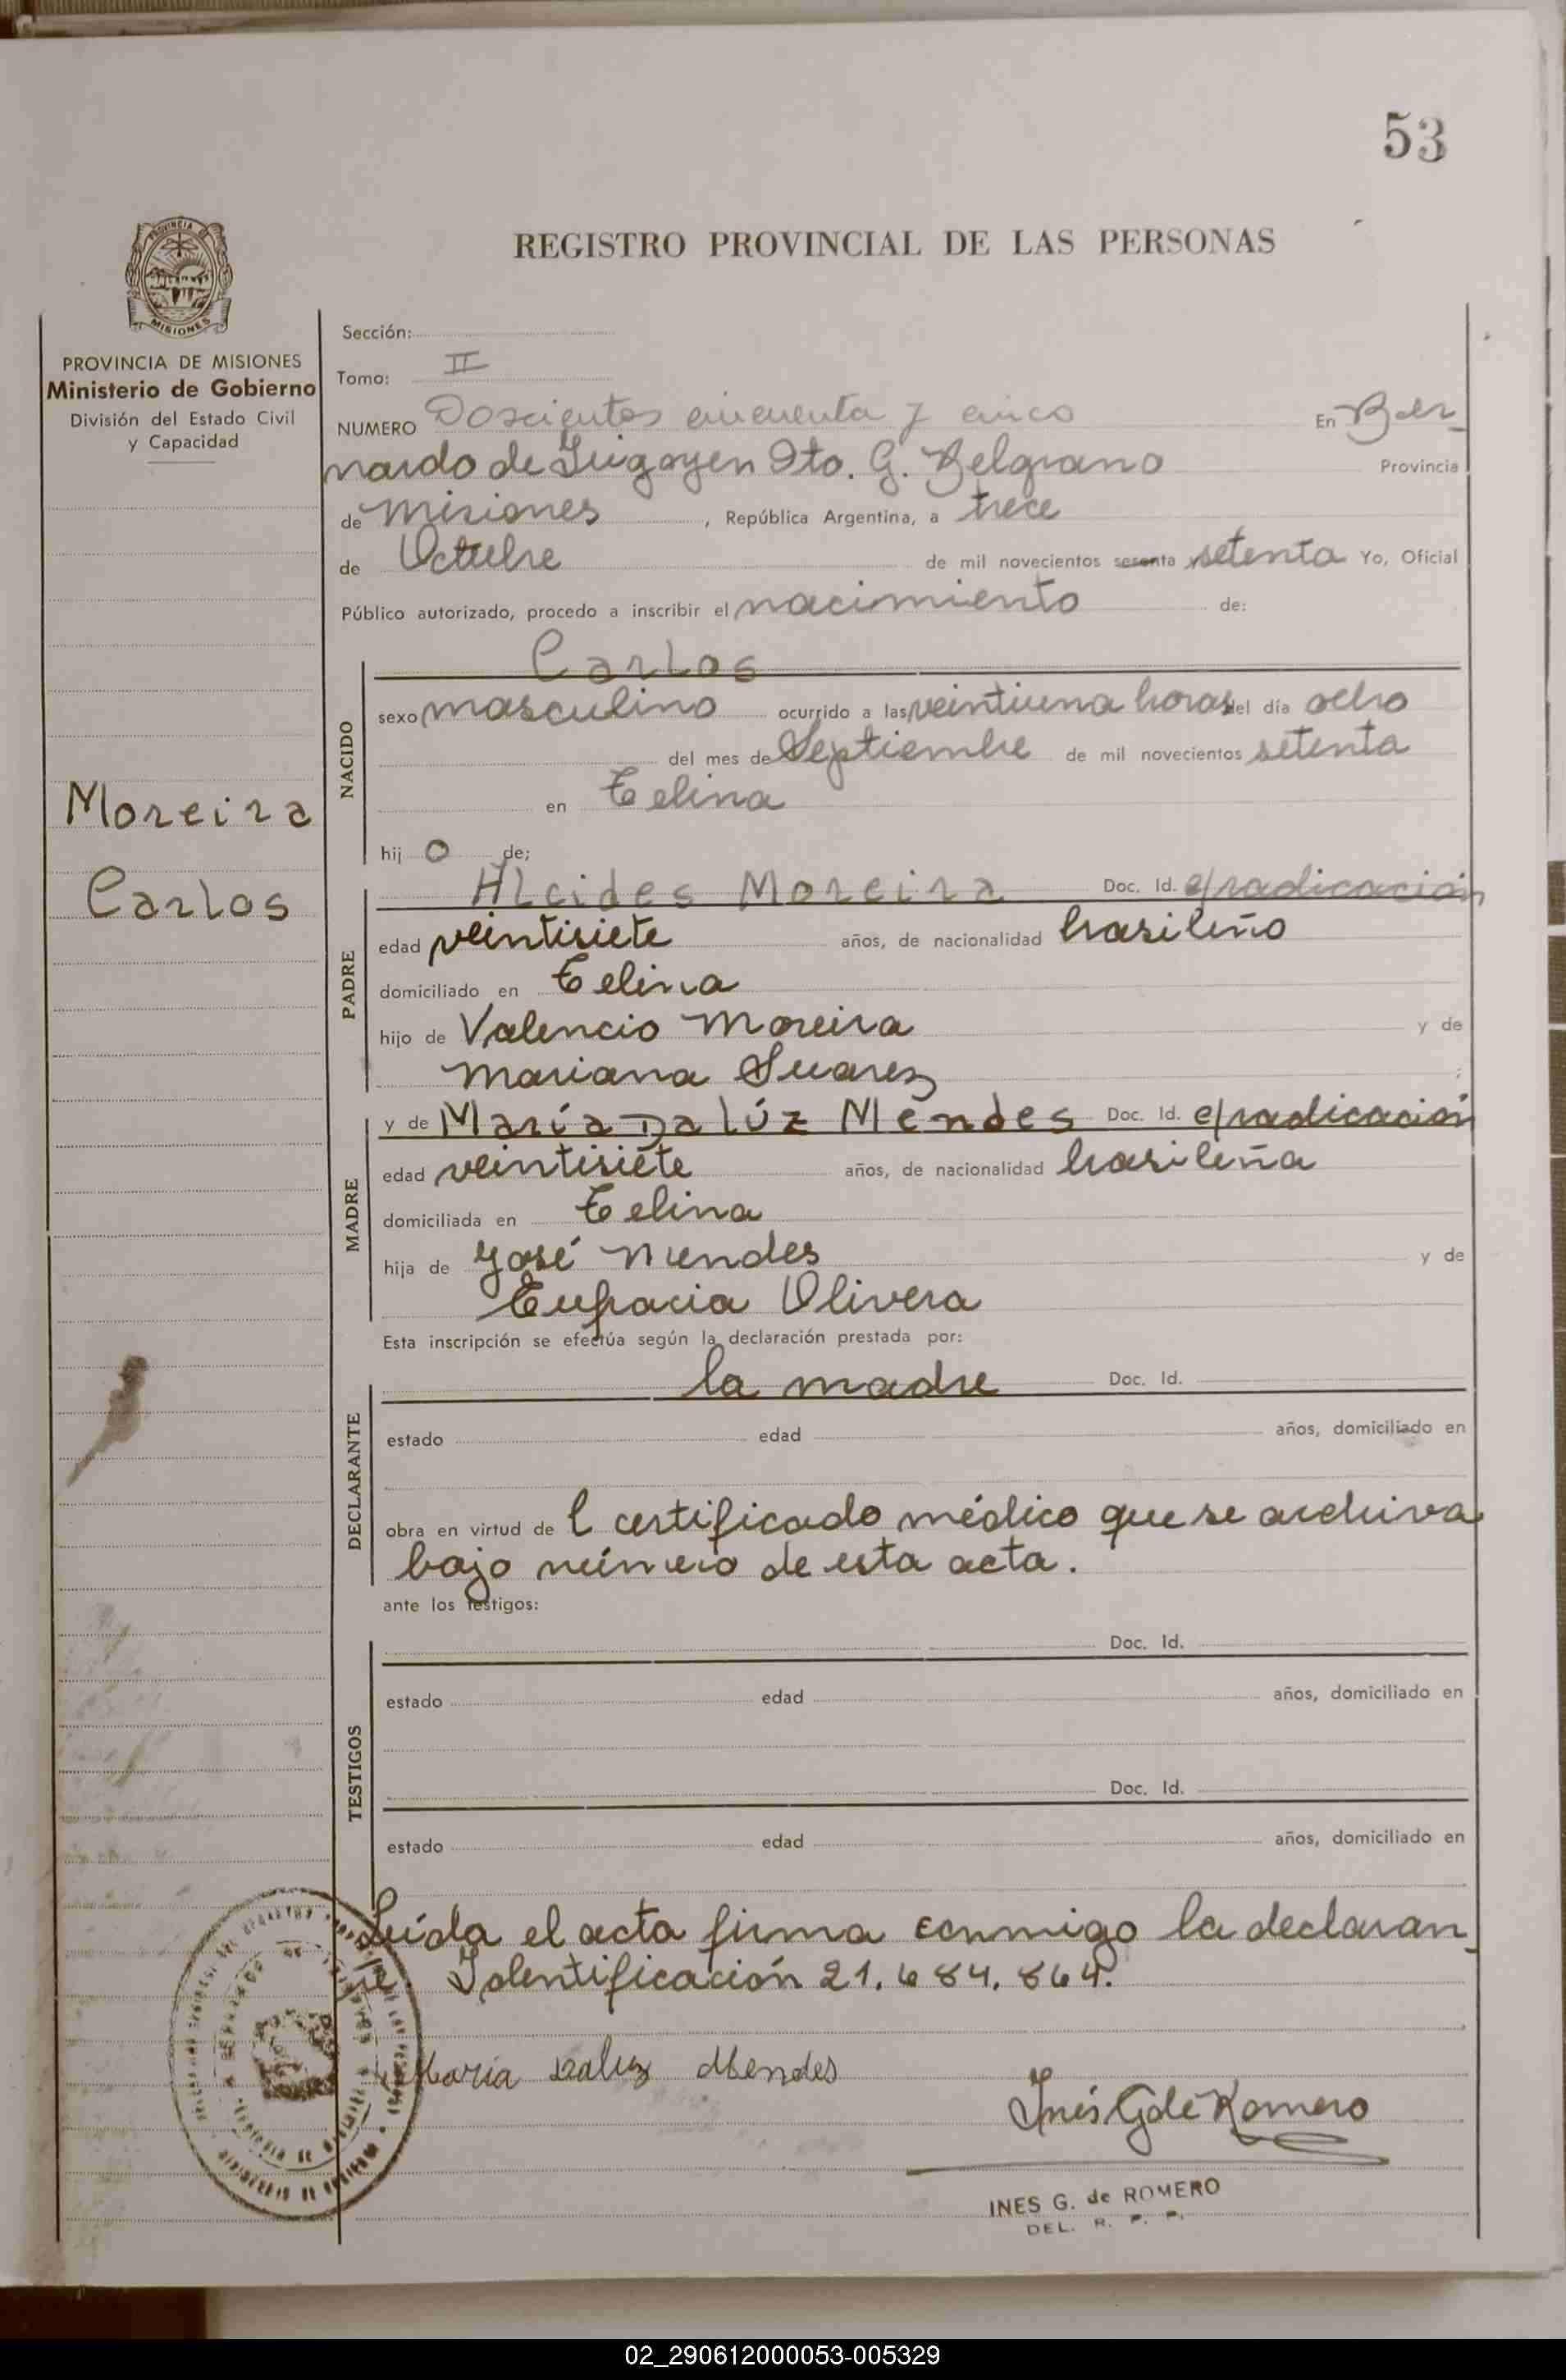 53
REGISTRO PROVINCIAL DE LAS PERSONAS
PROVINCIA MISIONES
PROVINCIA DE MISIONES
Ministerio de Gobierno
División del Estado Civil
y Capacidad
Moreira
Carlos
Sección:
Tomo: II
NUMERO Doscientos cincuenta y cinco En Ber_
nardo de Irigoyen Dto. G. Belgrano Provincia
de Misiones, República Argentina, a trece
de Octubre de mil novecientos sesenta setenta Yo, Oficial
Público autorizado, procedo a inscribir el nacimiento de:
NACIDO
Carlos
sexo masculino ocurrido a las veintiuna horas del día ocho
del mes de Septiembre de mil novecientos setenta
en Celina
hij o de;
PADRE
Alcides Moreira Doc. Id. e/radicación
edad veintisiete años, de nacionalidad brasileño
domiciliado en Celina
hijo de Valencio Moreira y de
Mariana Suarez ;
MADRE
y de María Da lúz Méndes Doc. Id. e/radicación
edad veintisiete años, de nacionalidad brasileña
domiciliada en Celina
hija de José Mendes y de
Olivera
Esta inscripción se efectúa según la declaración prestada por:
DECLARANTE
la madre Doc. Id.
estado edad años, domiciliado en
obra en virtud de l certificado médico que se archiva
bajo número de esta acta.
ante los testigos:
TESTIGOS
Doc. Id.
estado edad años, domiciliado en
Doc. Id.
estado edad años, domiciliado en
Leída el acta firma conmigo la declaran_
te Identificación 21.684.864.
Maria Daluz Mendes
Inés G de Romero
INES G. de ROMERO
DEL. R. P. P.
02_290612000053-005329